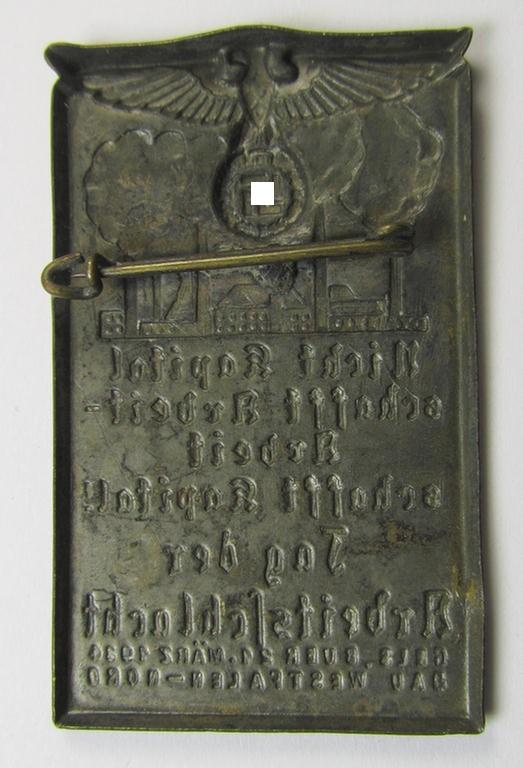 Nicht Kapital
schafft Arbeit-
Arbeit
schafft Kapital!
Tag der
Arbeitsschlacht
GELS. BUER 21. MÄRZ 1934
GAU WESTFALEN-NORD